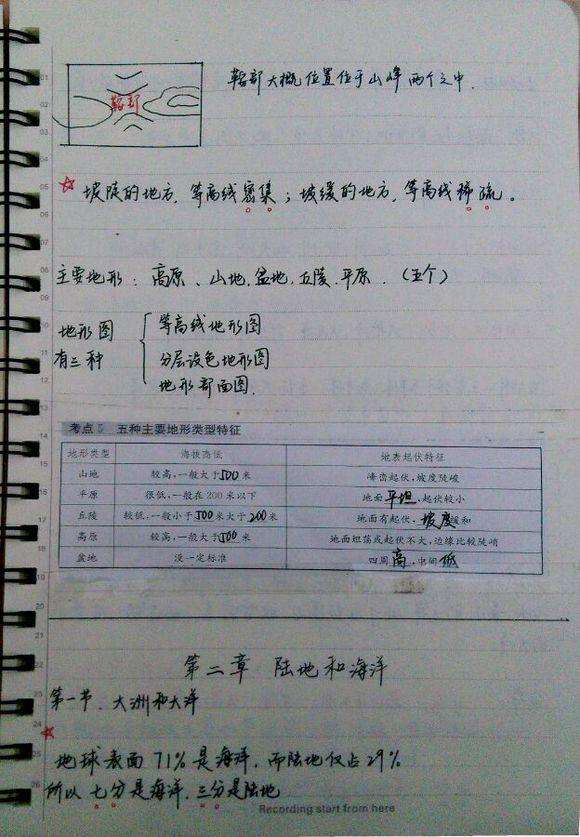 鞍部大概位置位于山峰两个之中.
鞍部
☆ 坡陡的地方,等高线密集;坡缓的地方,等高线稀疏。
主要地形:高原、山地,盆地,丘陵,平原.(五个)
地形图有三种
等高线地形图
分层设色地形图
地形剖面图.
考点5 五种主要地形类型特征
地形类型 海拔高低 地表起伏特征
山地 较高,一般大于500米 峰峦起伏,坡度陡峻
平原 很低,一般在200米以下 地面平坦,起伏较小
丘陵 较低,一般小于500米大于200米 地面有起伏,坡度缓和
高原 较高,一般大于500米 地面坦荡或起伏不大,边缘比较陡峭
盆地 没一定标准 四周高,中间低
第二章 陆地和海洋
第一节、大洲和大洋
☆
地球表面71%是海洋,而陆地仅占29%
所以七分是海洋,三分是陆地
Recording start from here